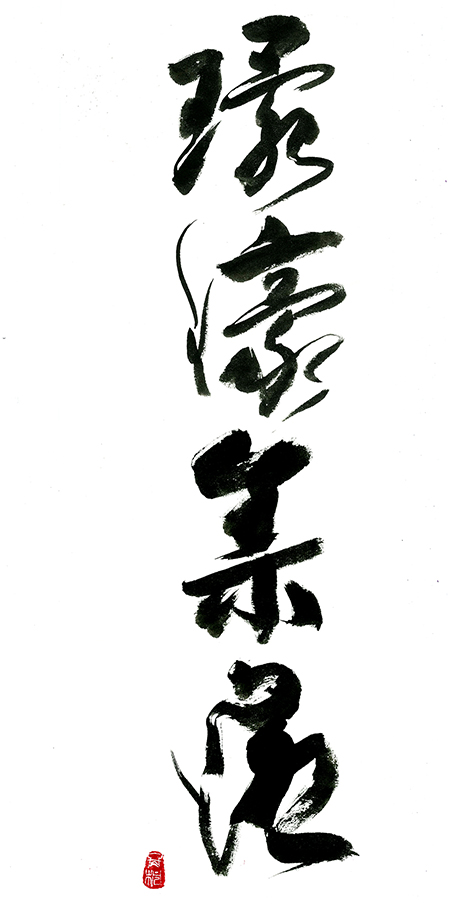 環濠集落